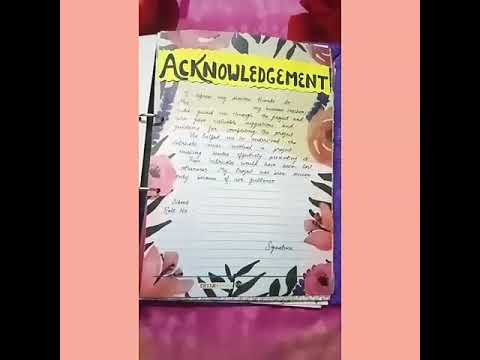 ACKNOWLEDGEMENT
I express my sincere thanks to
My my science teacher,
who guided me through the project and
also gave valuable suggestions and
guidance for completing the project
He helped me to understand the
intricate issues involved in project
making besides effectively presenting it.
These intricacies would have been lost
otherwise. My Project has been success
only because of his guidance.
School
Roll No
Signature